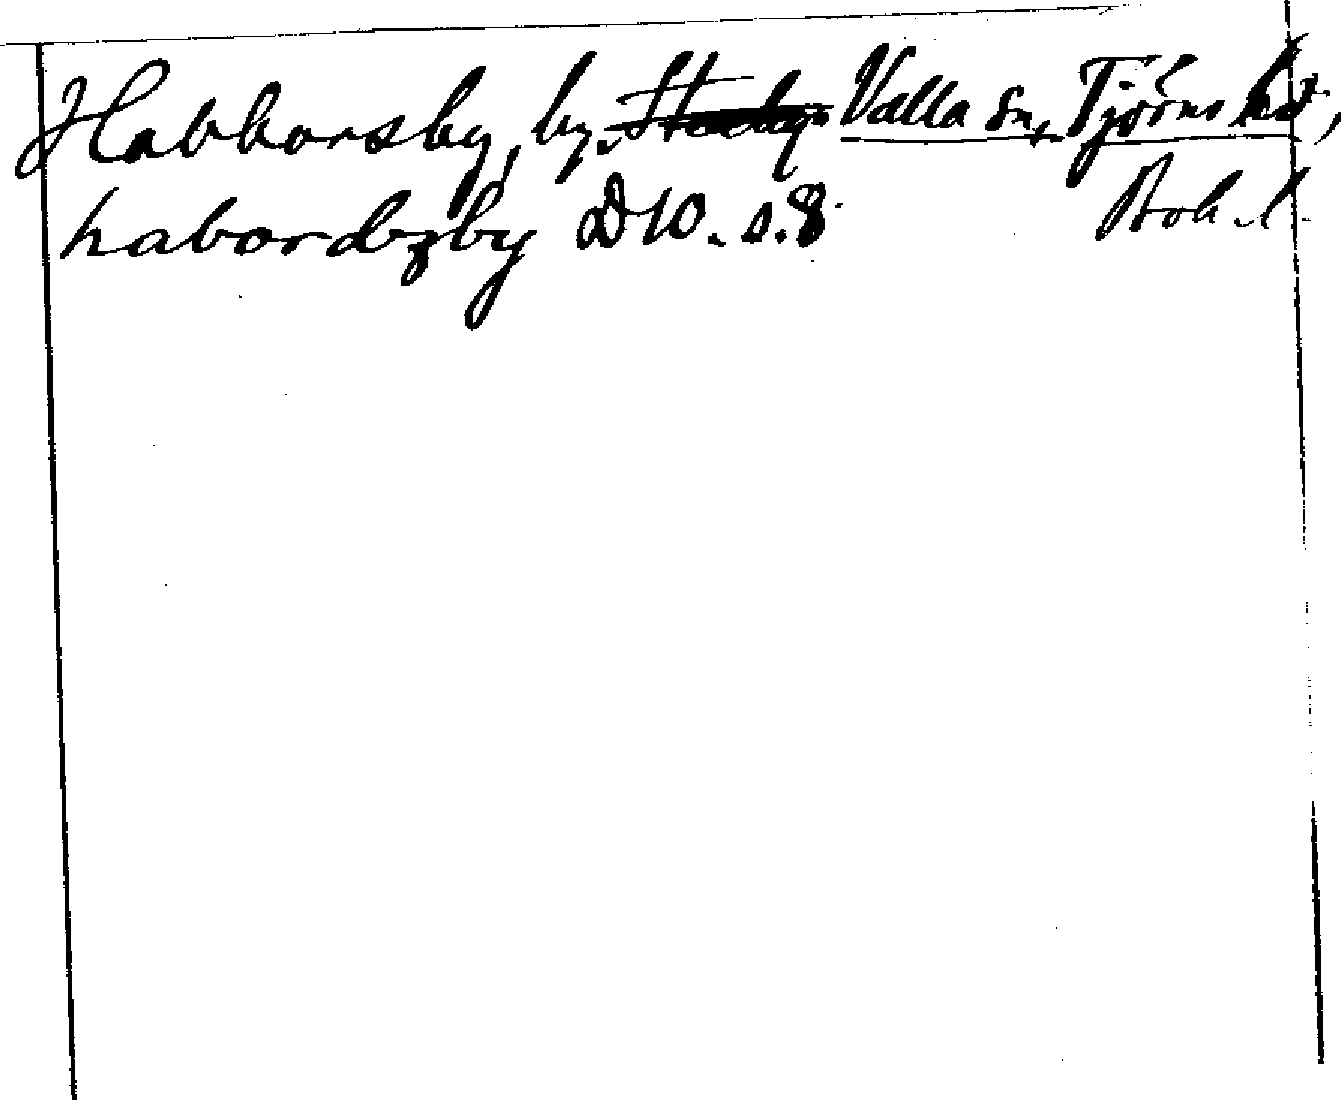 Habborsby, by, Valla sn, Tjörns hd,
habordzby D10. s. 8. Boh. l.